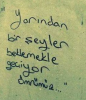 yarından
bir şeyler
beklemekle
geçiyor
ömrümüz...